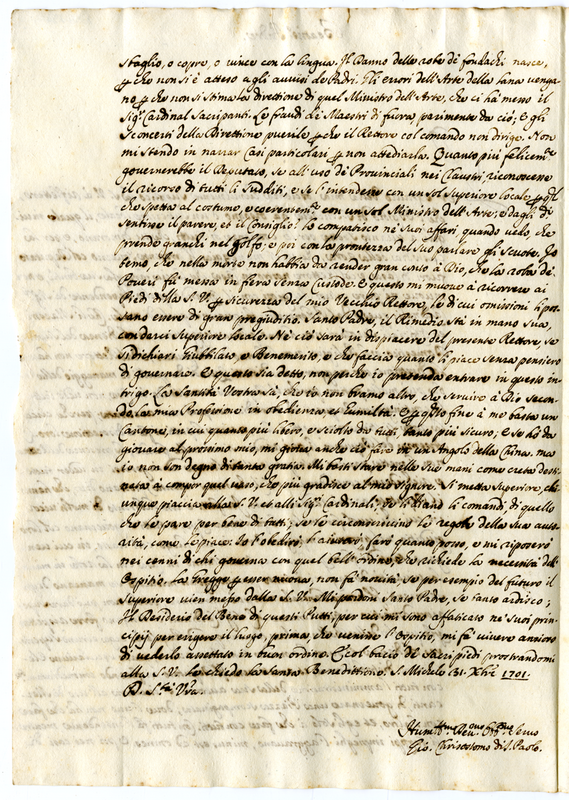 sbaglio, o copre, o vince con la lingua. Il Danno delle robe de' fondachi nasce,
che non si è atteso agli avvisi de Padri. Gli errori dell'Arte della lana venga-
no che non si stima la direttione di quel Ministro dell'Arte, che ci hà messo il
Sig.r Cardinal Sacripanti. Le fraudi de' Maestri di fiera, parimente da ciò; e gli
sconcerti della Direttione puerile, che il Rettore col comando non dirige. Non
mi stendo in narrar Casi particolari non attediarla. Quanto più felicem.te
governerebbe il Deputato, se all'uso de' Provinciali nei Claustri, riconoscesse
il ricorso di tutti li sudditi, e se l'intendesse con un sol Superiore locale
che spetta al costume, e coerentem.te con un sol Ministro dell'Arte; e dagli
sentire il parere, et il Consiglio: lo compatisco ne' suoi affari, quando vedo, che
prende granchi nel golfo; e poi con la prontezza del suo parlare gli scuote. Io
temo, che nella morte non habbia da render gran conto à Dio, che la roba de'
Poveri fù messa in fiera senza Custode. E questo mi muove à ricorrere ai
Piedi della S. V. sicurezza del mio Vecchio Rettore, le di cui omissioni li pos-
sano essere di gran pregiuditio. Santo Padre, il Rimedio stà in mano sua,
con darci Superiore locale. Nè ciò sarà in dispiacere del presente Rettore, se
si dichiari Giubilato, e Benemerito, e che faccia quanto li piace senza pensiero
di governare. E questo sia detto, non perche io pretenda entrare in questo in-
trigo. La Santità Vostra sà, che io non bramo altro, che servire à Dio secon-
do la mia Professione in obedienza, et humiltà; e questo fine à me basta un
Cantone, in cui quanto più libero, e sciolto da tutti, tanto più sicuro; e se hò da
giovare al prossimo mio, mi giova anche ciò fare in un Angolo della Cina, ma
io non son degno di tanta gratia. Mi basti stare nelle sue mani come creta desti-
nata à compor quel vaso, che più gradisce al mio Signore. Si metta Superiore, chi-
unque piaccia alla S. V. et alli Sig.ri Cardinali; se li diano li comandi, di quello
che le pare per bene di tutti; se le circonscrivino le regole della sua auto-
rità, come le piace. Io l'obedirò, l'aiutarò, farò quanto posso, e mi riposerò
nei cenni di chi governa con quel bell'ordine, che richiede la necessità dell'
Ospitio. La Gregge esser nuova, non fà novità se per esempio del futuro il
Superiore vien messo dalla S. V. Mi perdoni Santo Padre, se tanto ardisco;
Il Desiderio del Bene di questi Putti, per cui mi sono affaticato ne' suoi prin-
cipij per erigere il luogo, prima, che venisse l'Ospitio, mi fà vivere ansioso
di vederlo assettato in buon ordine. E col bacio de' Sacri piedi prostrandomi
alla S. V. le chiedo la Santa Benedittione. S. Michele 31. Xbre 1701.
D. S.tà V.ra.
Hum.mo Dev.mo Obb.mo Servo
Gio. Chrisostomo di S. Paolo.